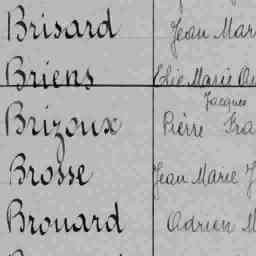 Brisard Jean Mar
Briens Elie Marie
Jacques
Brizoux Pierre Fra
Brosse Jean Marie J
Brouard Adrien M